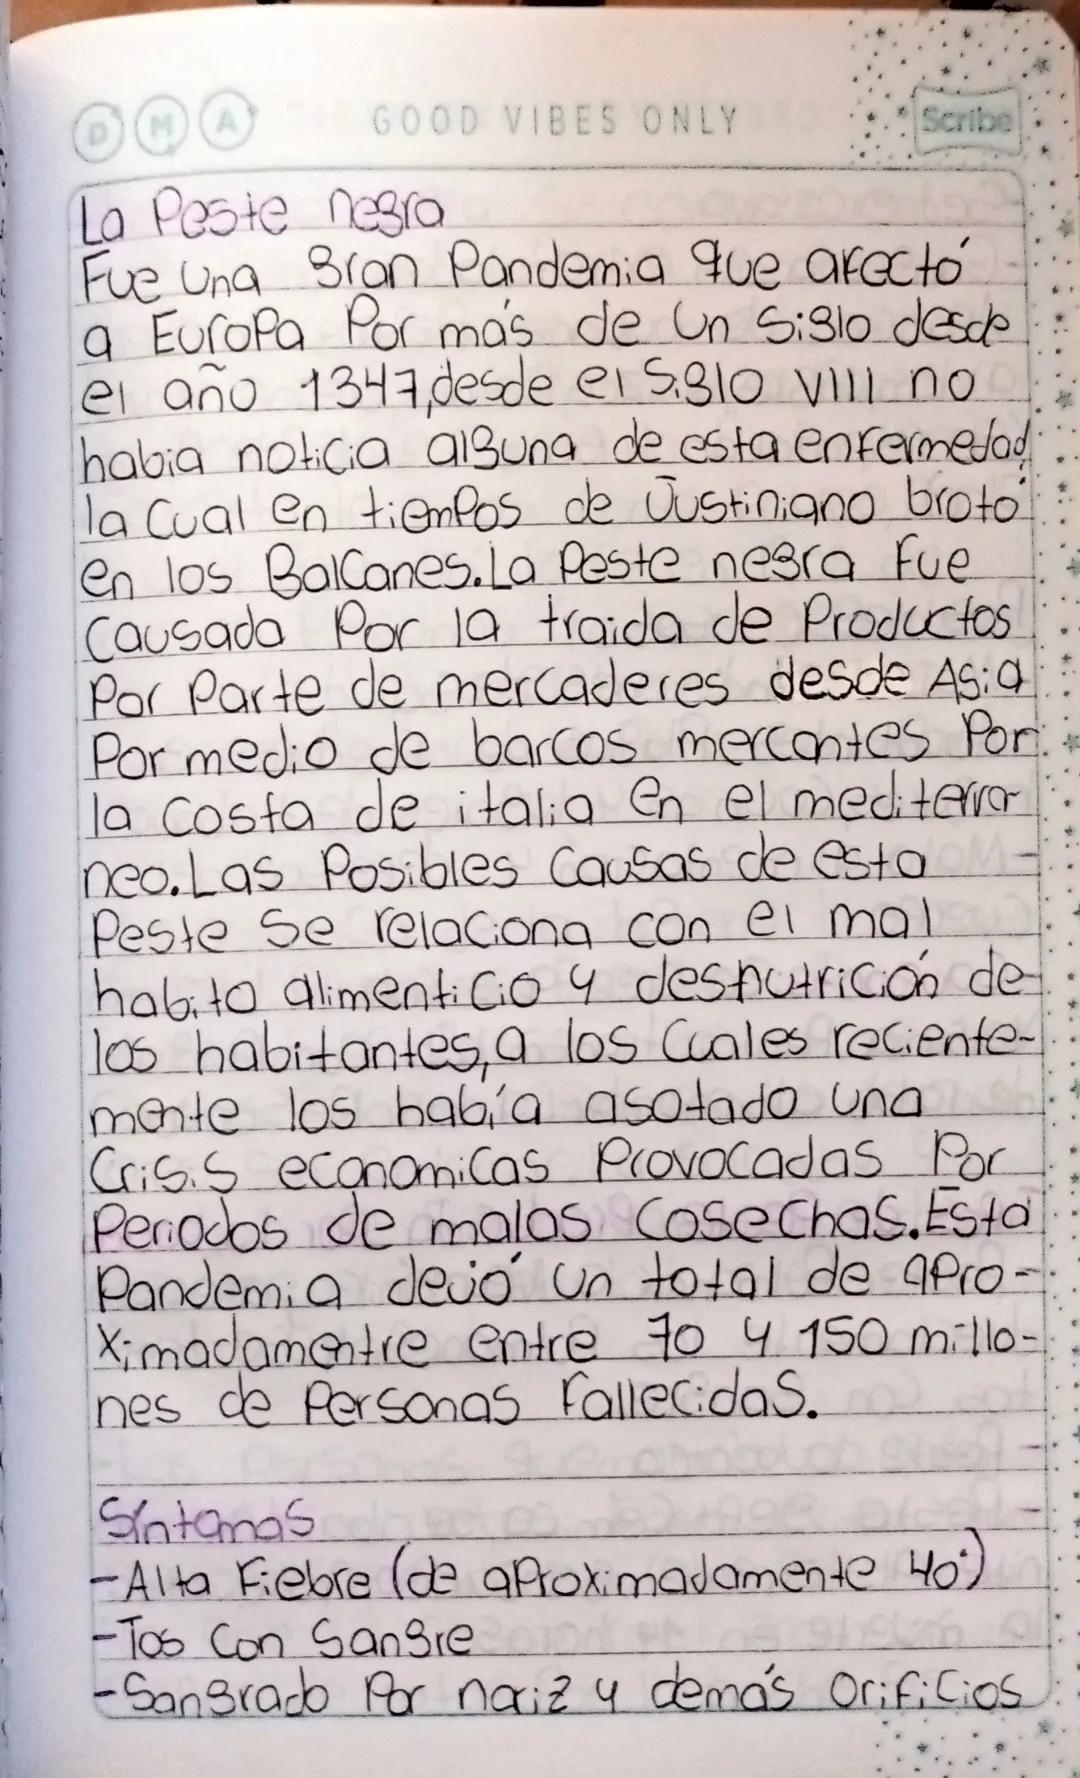 D M A GOOD VIBES ONLY Scribe
La Peste negra
Fue una gran Pandemia que afectó
a Europa Por más de un siglo desde
el año 1347, desde el siglo VIII no
habia noticia alguna de esta enfermedad,
la cual en tiempos de Justiniano brotó
en los Balcanes. La Peste negra fue
Causada Por la traida de Productos
Por Parte de mercaderes desde Asia
Por medio de barcos mercantes Por
la costa de italia en el mediterra
neo. Las Posibles Causas de esta
Peste se relaciona con el mal
habito alimenticio y desnutrición de
los habitantes, a los cuales reciente-
mente los había asotado una
Crisis economicas Provocadas Por
Periodos de malas cosechas. Esta
Pandemia dejó un total de apro-
ximadamentre entre 70 y 150 millo-
nes de Personas fallecidas.
Síntomas
-Alta fiebre (de aproximadamente 40°)
-Tos con Sangre
-Sangrado Por nariz y demás orificios